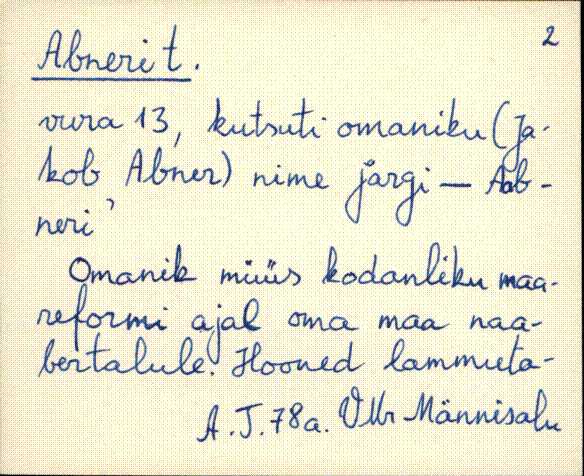 2
Abneri t.
vura 13, kutsuti omaniku (Ja-
kob Abner) nime järgi — Aab-
neri’
Omanik müüs kodanliku maa-
reformi ajal oma maa naa-
bertalule. Hooned lammuta-
A.J.78a. VMr Männisalu